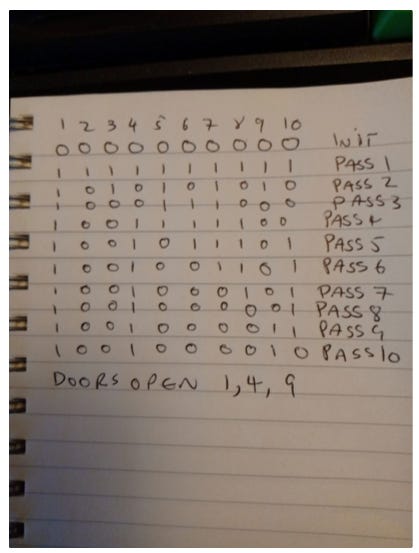 1 2 3 4 5 6 7 8 9 10
0 0 0 0 0 0 0 0 0 0 INIT
1 1 1 1 1 1 1 1 1 1 PASS 1
1 0 1 0 1 0 1 0 1 0 PASS 2
1 0 0 0 1 1 1 0 0 0 PASS 3
1 0 0 1 1 1 1 1 0 0 PASS 4
1 0 0 1 0 1 1 1 0 1 PASS 5
1 0 0 1 0 0 1 1 0 1 PASS 6
1 0 0 1 0 0 0 1 0 1 PASS 7
1 0 0 1 0 0 0 0 0 1 PASS 8
1 0 0 1 0 0 0 0 1 1 PASS 9
1 0 0 1 0 0 0 0 1 0 PASS 10
DOORS OPEN 1, 4, 9